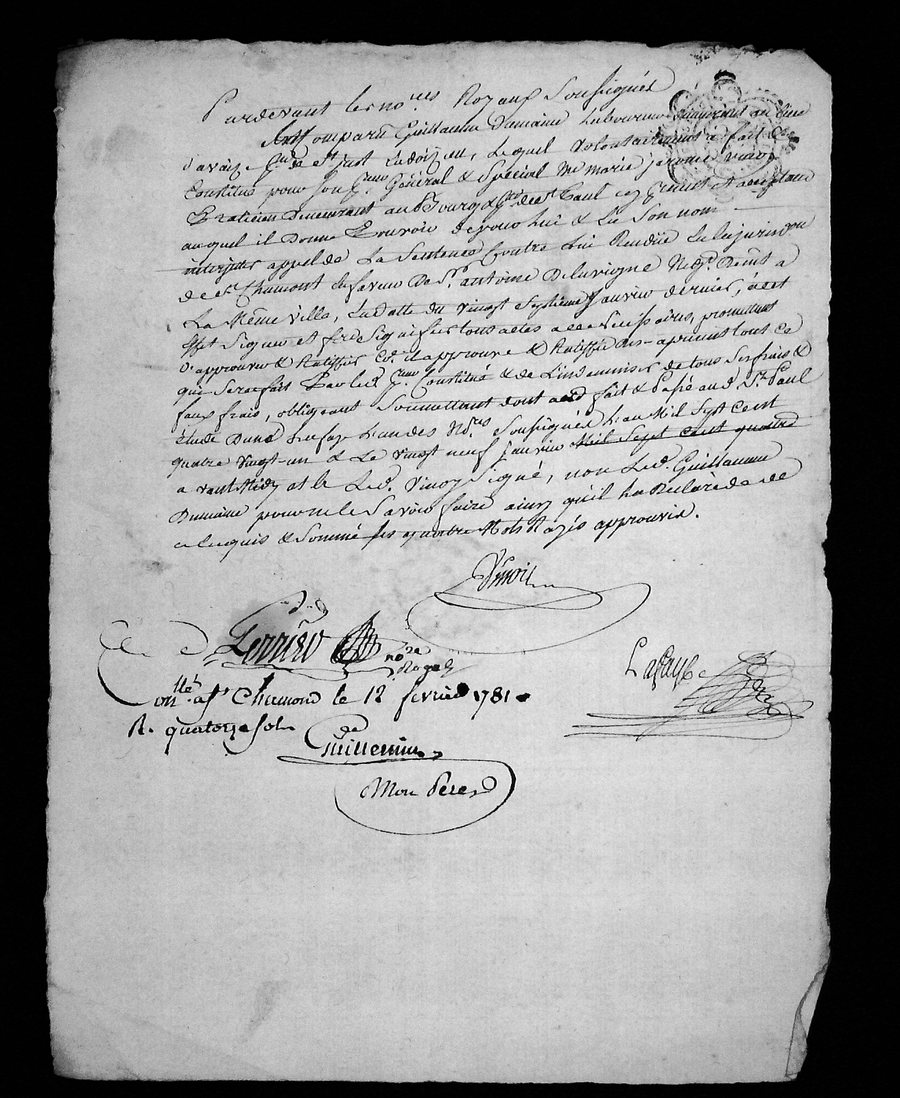 Pardevant les no.res Royaux Soussignés
Est Comparu Guillaume Dumaine Laboureur demeurant au lieu
d'avaize P.sse de S.t just Ladoizieu, Lequel volontairement a fait &
Constitué pour Son P.reur Général & Spécial M.e marie jerome vinoy
Praticien Demeurant au Bourg de S.t Paul en
auquel il Donne Pouvoir de pour Lui & En Son nom
interjetter appel de La Sentence Contre Lui Rendüe En la jurisd.on
de S.t Chamont En faveur De S.r antoine Delavigne Neg.t Dem.t a
La Même ville, En datte du vingt Septieme janvier dernier, à cet
effet Signer et f.re Signifier tous actes necessaires, promettant
D'approuver & Ratiffier Co.e il approuve & Ratiffie des-apresent tout ce
que Sera fait Par led. P.reur Constitué & de L'indemniser de tous Ses frais &
faux frais, obligeant Soumettant dont acte fait & Passé aud. S.t Paul
étude D'un des Nd.res Soussignés L'an Mil Sept Cent
quatre vingt-un & Le vingt neuf janvier Mil Sept cent quatre
avant Midy et a Led. Vinoy Signé, non Led. Guillaume
Dumaine pour ne le Savoir faire ainsy qu'il l'a Déclaré de ce
Enquis & Sommé les quatre Mots Rayés approuvés.
Vinoy
Ferrier no.re Royal
Lafay
Con.llé a S.t Chamond le 12 fevrier 1781
R. quatorze sols
Guillemin
Mon Pere